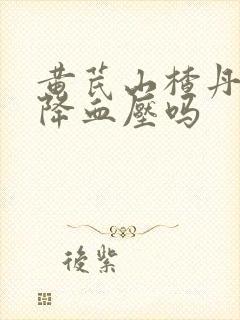 黄芪山楂丹
降血壓吗
後紫